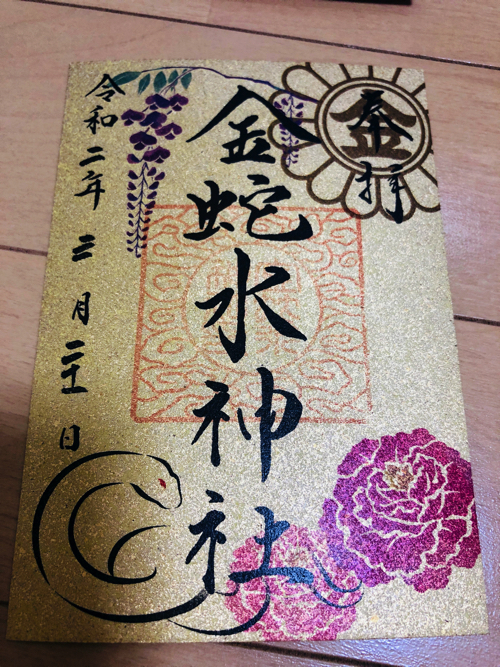 奉拝
金蛇水神社
令和二年三月二十一日